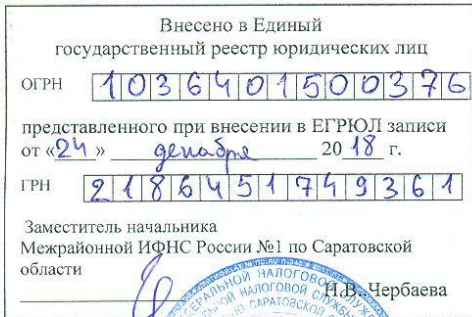 Внесено в Единый
государственный реестр юридических лиц
ОГРН 1036401500376
представленного при внесении в ЕГРЮЛ записи
от «24» декабря 2018 г.
ГРН 2186451749361
Заместитель начальника
Межрайонной ИФНС России №1 по Саратовской
области
Н.В. Чербаева